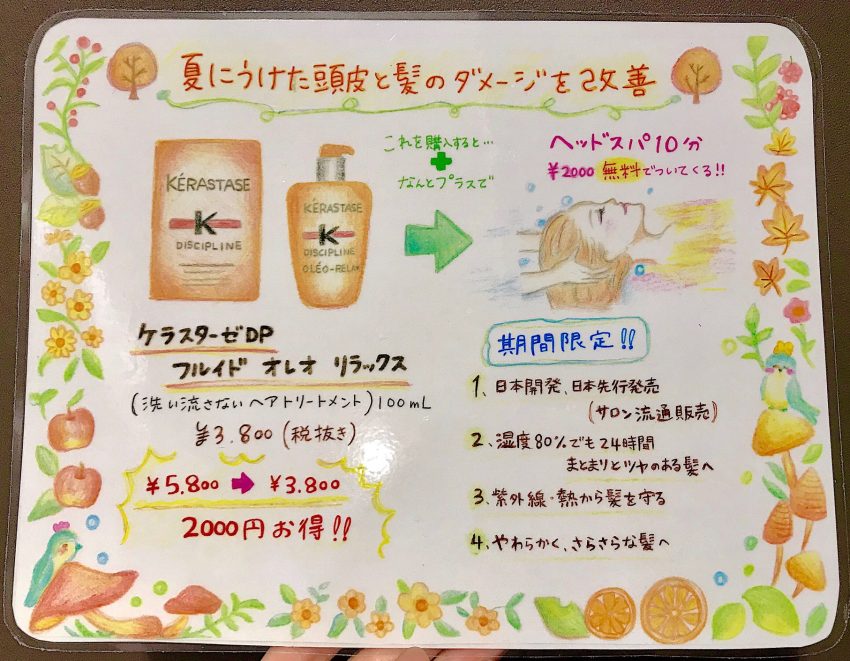 夏にうけた頭皮と髪のダメージを改善
KÉRASTASE
K
DISCIPLINE
KÉRASTASE
K
DISCIPLINE
OLÉO-RELAX
これを購入すると…
なんとプラスで
ヘッドスパ10分
¥2000 無料でついてくる!!
ケラスターゼDP
フルイド オレオ リラックス
(洗い流さない ヘアトリートメント) 100mL
¥3.800 (税抜き)
¥5.800 ➡ ¥3.800
2000円お得!!
期間限定!!
1、日本開発、日本先行発売
(サロン流通販売)
2、湿度80%でも24時間
まとまりとツヤのある髪へ
3、紫外線・熱から髪を守る
4、やわらかく、さらさらな髪へ